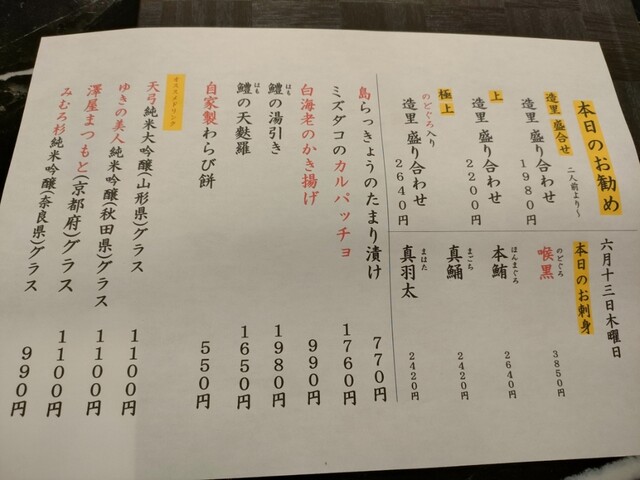 本日のお勧め
造里 盛合せ 二人前より～
造里 盛り合わせ 1980円
上
造里 盛り合わせ 2200円
極上
のどぐろ入り
造里 盛り合わせ 2640円
六月十三日木曜日
本日のお刺身
喉黒 のどぐろ 3850円
本鮪 ほんまぐろ 2640円
真鯒 まごち 2420円
真羽太 まはた 2420円
島らっきょうのたまり漬け 770円
ミズダコのカルパッチョ 1760円
白海老のかき揚げ 990円
鱧の湯引き はも 1980円
鱧の天麩羅 はも 1650円
自家製わらび餅 550円
オススメドリンク
天弓純米大吟醸(山形県)グラス 1100円
ゆきの美人純米吟醸(秋田県)グラス 1100円
澤屋まつもと(京都府)グラス 1100円
みむろ杉純米吟醸(奈良県)グラス 990円